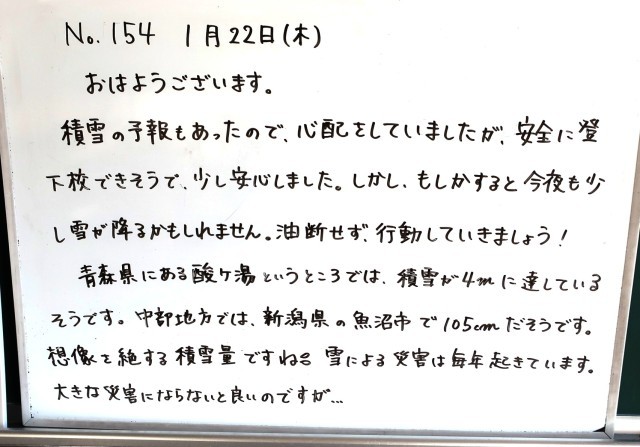 No.154 1月22日(木)
おはようございます。
積雪の予報もあったので、心配をしていましたが、安全に登
下校できそうで、少し安心しました。しかし、もしかすると今夜も少
し雪が降るかもしれません。油断せず、行動していきましょう!
青森県にある酸ケ湯というところでは、積雪が4mに達している
そうです。中部地方では、新潟県の魚沼市で105cmだそうです。
想像を絶する積雪量ですね。雪による災害は毎年起きています。
大きな災害にならないと良いのですが…